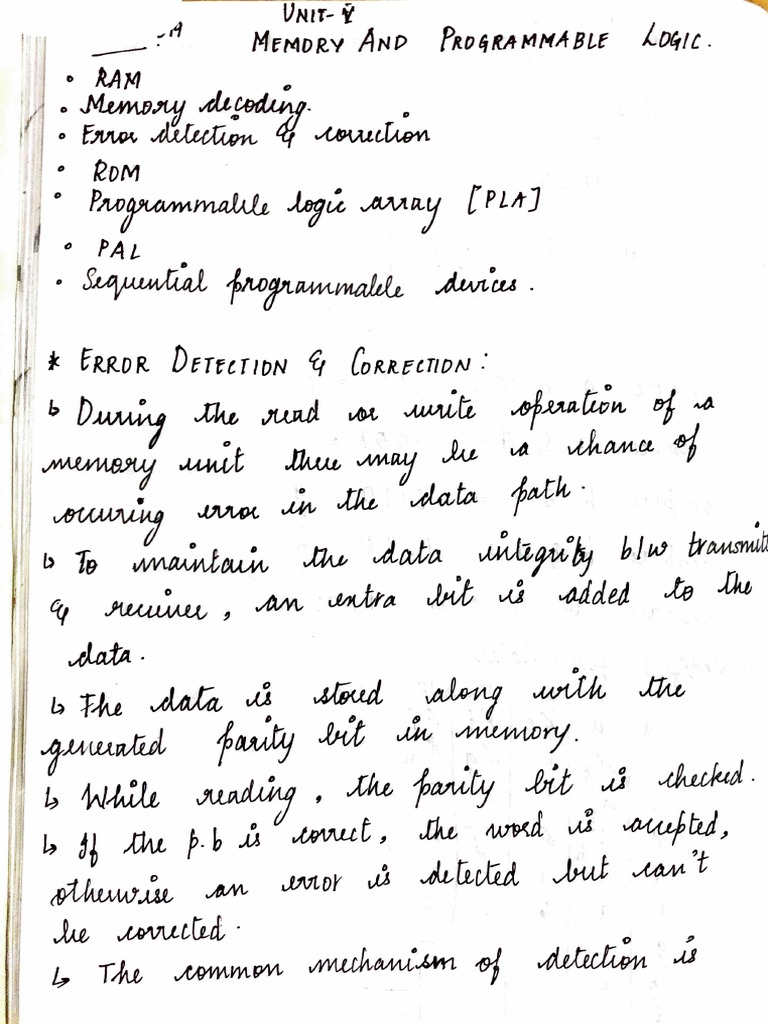 UNIT-V
MEMORY AND PROGRAMMABLE LOGIC.
• RAM
• Memory decoding.
• Error detection & correction
• ROM
• Programmable logic array [PLA]
• PAL
• Sequential programmable devices.
* ERROR DETECTION & CORRECTION:
↳ During the read or write operation of a
memory unit there may be a chance of
occuring error in the data path.
↳ To maintain the data integrity b/w transmitt
& reciever, an extra bit is added to the
data.
↳ The data is stored along with the
generated parity bit in memory.
↳ While reading, the parity bit is checked.
↳ If the p.b is correct, the word is accepted,
otherwise an error is detected but can't
be corrected.
↳ The common mechanism of detection is